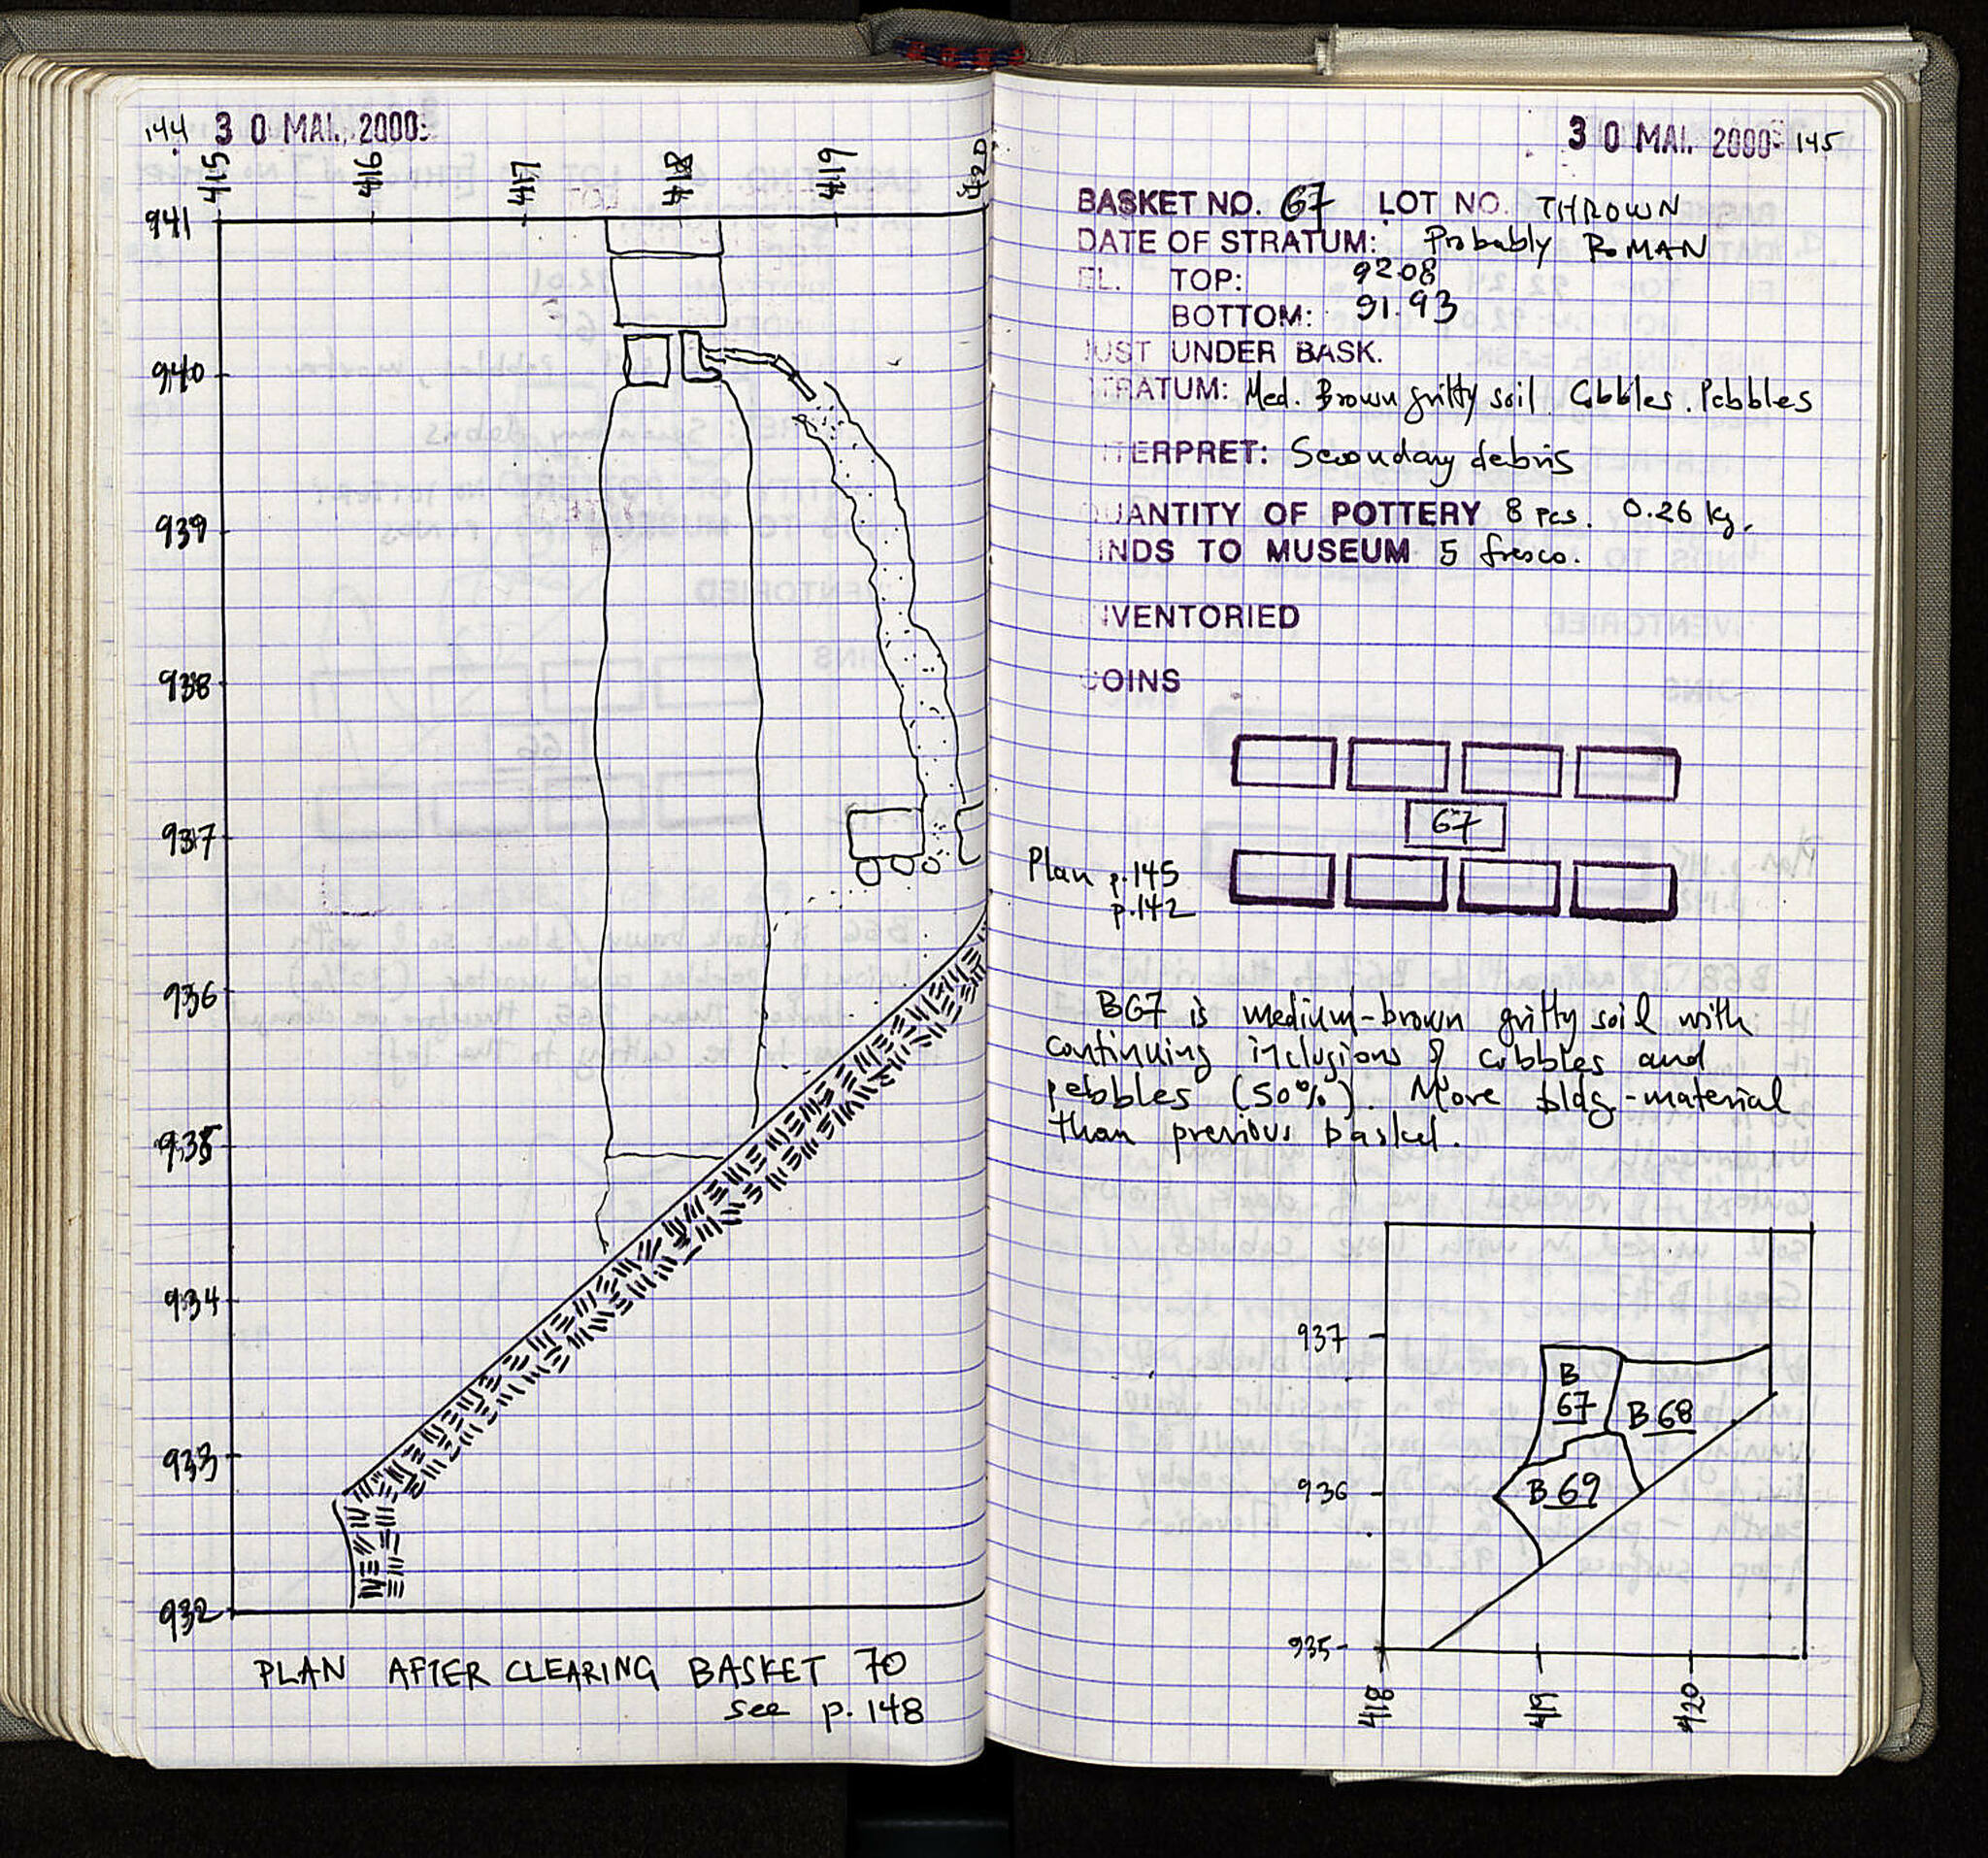 144 3 0 MAI. 2000
415 416 417 418 419 420
941
940
939
938
937
936
935
934
933
932
PLAN AFTER CLEARING BASKET 70
see p. 148
3 0 MAI. 2000 145
BASKET NO. 67 LOT NO. THROWN
DATE OF STRATUM: Probably ROMAN
EL. TOP: 92.08
BOTTOM: 91.93
JUST UNDER BASK.
STRATUM: Med. Brown gritty soil. Cobbles. Pebbles
INTERPRET: Secondary debris
QUANTITY OF POTTERY 8 pcs. 0.26 kg.
FINDS TO MUSEUM 5 fresco.
INVENTORIED
COINS
67
Plan p.145
p.142
B67 is medium-brown gritty soil with
continuing inclusions of cobbles and
pebbles (50%). More bldg-material
than previous basket.
937
B
67
B 68
936
B 69
935
418 419 420